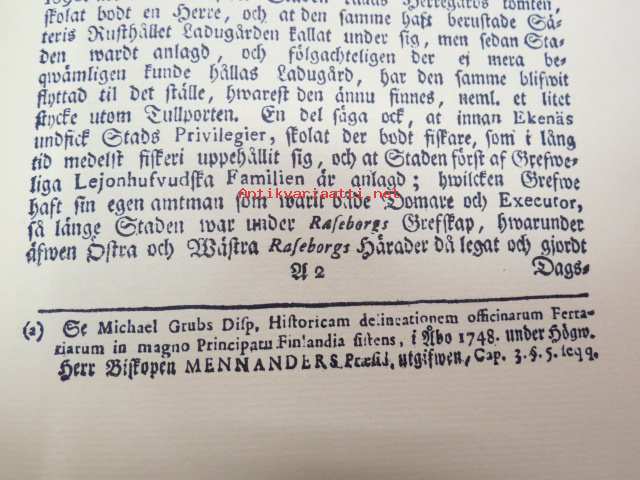 ſkolat bodt en Herre, och at den ſamme haft beruſtade Sä-
teris Ruſthållet Ladugården kallat under ſig, men ſedan Sta-
den wardt anlagd, och fölgachteligen der ej mera be-
qwämligen kunde hållas Ladugård, har den ſamme blifwit
flyttad til det ſtälle, hwareſt den ännu finnes, neml. et litet
ſtycke utom Tullporten. En del ſäga ock, at innan Ekenäs
undfick Stads Privilegier, ſkolat der bodt fiſkare, ſom i lång
tid medelſt fiſkeri uppehållit ſig, och at Staden förſt af Grefwe-
liga Lejonhufvudſka Familien är anlagd; hwilcken Grefwe
haft ſin egen amtman ſom warit både Domare och Executor,
ſå länge Staden war under Raſeborgs Grefſkap, hwarunder
äfwen Oſtra och Wäſtra Raſeborgs Härader då legat och gjordt
A 2 Dags-
(a) Se Michael Grubs Diſp. Hiſtoricam delineationem officinarum Ferra-
riarum in magno Principatu Finlandia ſiſtens, i Åbo 1748. under Högw.
Herr Biſkopen MENNANDERS Præſid. utgifwen, Cap. 3. §. 5. ſeqq.
Antikvariaatti.net